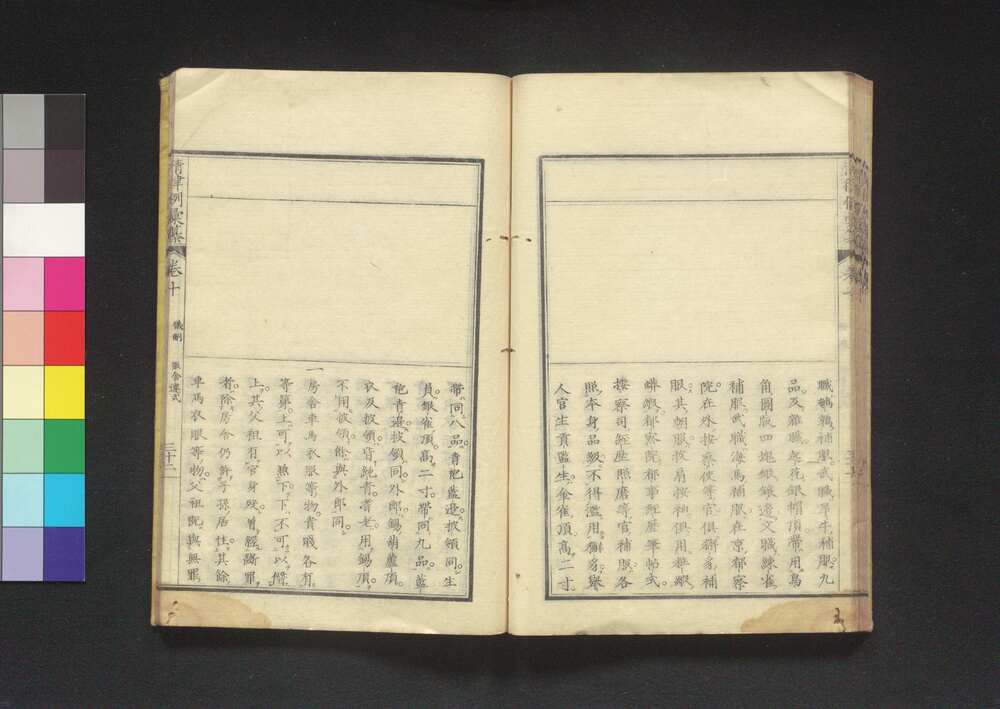 職鵪鶉補服武職犀牛補服九
品及雜職起花銀帽頂帶用烏
角圓版四塊銀邊文職練雀
補服武職海馬補服在京都察
院在外按察使等官俱獬豸補
服其朝服披肩接袖俱用蟒緞
都察院都事經歷筆帖式
按察司經歷照磨等官補服各
照本身品級不得濫用獬豸舉
人官生貢監生金雀頂高二寸
帶同八品青袍藍邊披領同生
員銀雀頂高二寸帶同九品藍
袍青邊披領同外郎錫葫蘆頂
衣及披領皆純青耆老用錫頂
不用披領餘與外郎同
一
房舍車馬衣服等物貴賤各有
等第上可以兼下下不可以僭
上其父祖有官身歿曾經斷罪
者除房舍仍許子孫居住其餘
車馬衣服等物父祖既與無罪
清律例彙纂
卷十
儀制
服舍違式
三十二